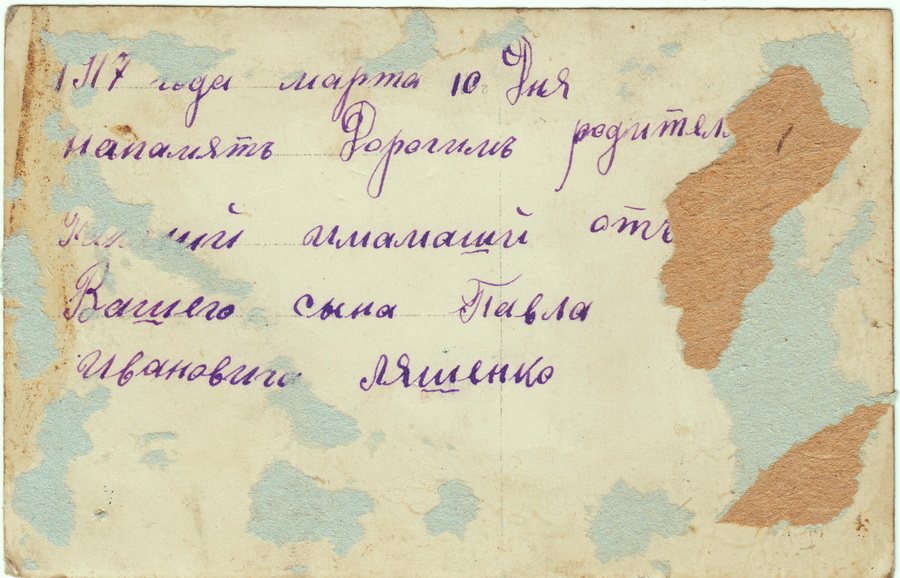 1917 года марта 10 Дня
напамять Дорогимъ родител
имамаший отъ
Вашего сына Павла
Ивановича Ляшенко